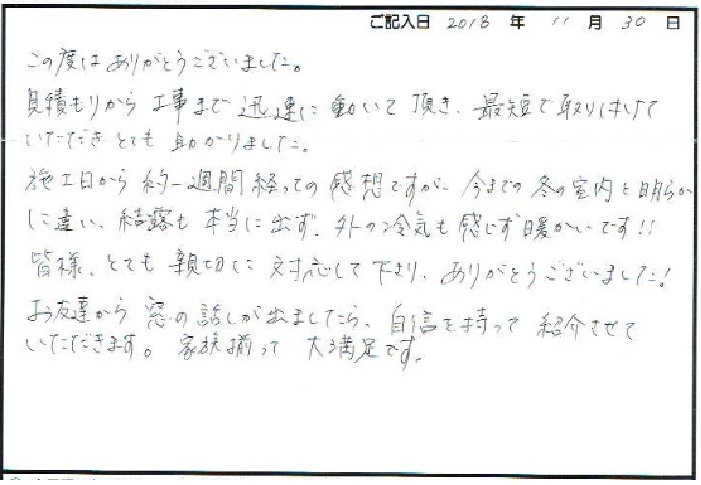 ご記入日 2018 年 11 月 30 日
この度は ありがとうございました。
見積もりから 工事まで 迅速に 動いて 頂き、最短で 取り付けて
いただき とても 助かりました。
施工日から 約一週間 経っての 感想ですが、今までの 冬の室内と 明らか
に違い、結露も 本当に 出ず、外の冷気も 感じず 暖かいです!!
皆様、とても 親切に 対応して 下さり、ありがとうございました!
お友達から 窓の話しが出ましたら、自信を持って 紹介させて
いただきます。 家族揃って 大満足です。